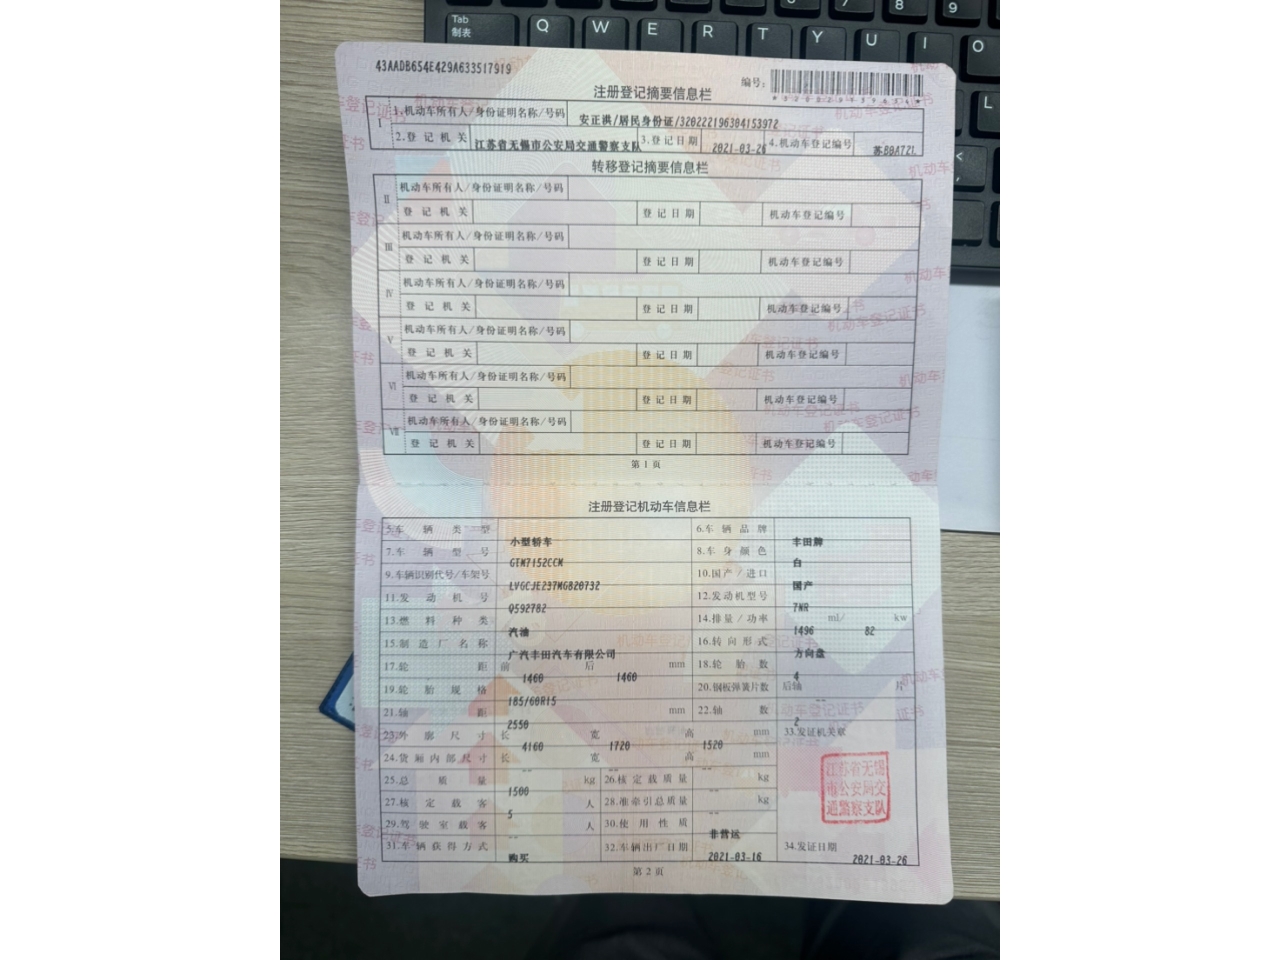 Tab
制表
Q W E R T Y U I O
7 8 9
L
43AADB654E429A633517919
编号:
注册登记摘要信息栏
I 1.机动车所有人/身份证明名称/号码 安正洪/居民身份证/320222196304153972
2.登记机关 江苏省无锡市公安局交通警察支队 3.登记日期 2021-03-26 4.机动车登记编号 苏BBA721
转移登记摘要信息栏
II 机动车所有人/身份证明名称/号码
登记机关 登记日期 机动车登记编号
III 机动车所有人/身份证明名称/号码
登记机关 登记日期 机动车登记编号
IV 机动车所有人/身份证明名称/号码
登记机关 登记日期 机动车登记编号
V 机动车所有人/身份证明名称/号码
登记机关 登记日期 机动车登记编号
VI 机动车所有人/身份证明名称/号码
登记机关 登记日期 机动车登记编号
VII 机动车所有人/身份证明名称/号码
登记机关 登记日期 机动车登记编号
第 1 页
注册登记机动车信息栏
5.车辆类型 小型轿车 6.车辆品牌 丰田牌
7.车辆型号 GTM7152CCM 8.车身颜色 白
9.车辆识别代号/车架号 LVGCJE237MG820732 10.国产/进口 国产
11.发动机号 Q592782 12.发动机型号 7NR
13.燃料种类 汽油 14.排量/功率 1496 ml/ 82 kw
15.制造厂名称 广汽丰田汽车有限公司 16.转向形式 方向盘
17.轮距 前 1460 后 1460 mm 18.轮胎数 4
19.轮胎规格 185/60R15 20.钢板弹簧片数 后轴 -- 片
21.轴距 2550 mm 22.轴数 2
23.外廓尺寸 长 4160 宽 1720 高 1520 mm 33.发证机关章
24.货厢内部尺寸 长 -- 宽 -- 高 -- mm
25.总质量 1500 kg 26.核定载质量 -- kg
27.核定载客 5 人 28.准牵引总质量 -- kg
29.驾驶室载客 -- 人 30.使用性质 非营运
31.车辆获得方式 购买 32.车辆出厂日期 2021-03-16 34.发证日期 2021-03-26
江苏省无锡
市公安局交
通警察支队
第 2 页